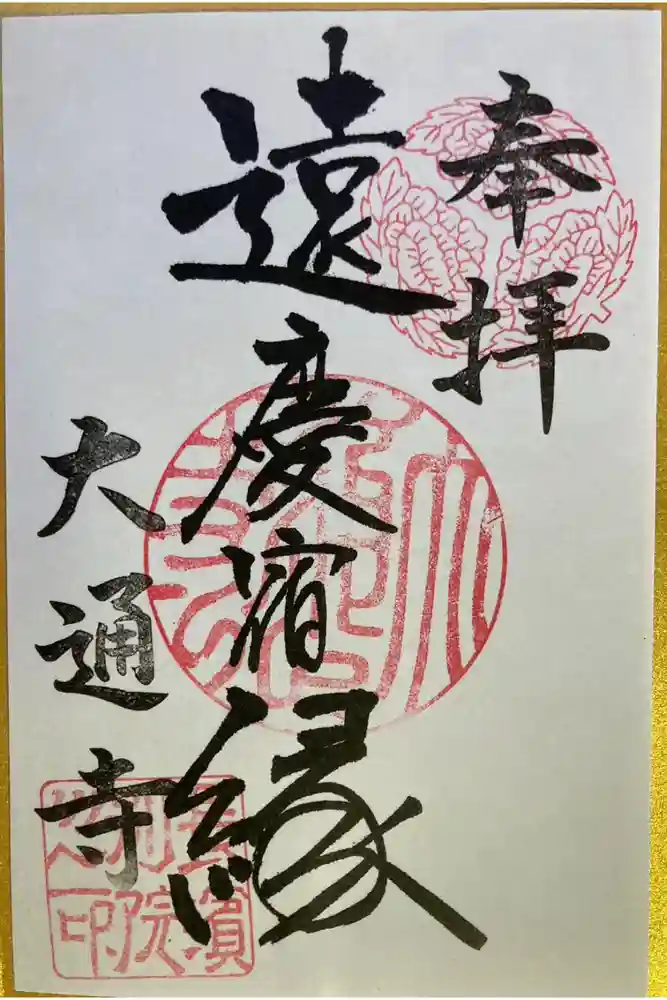 奉拝
遠慶宿縁
大通寺